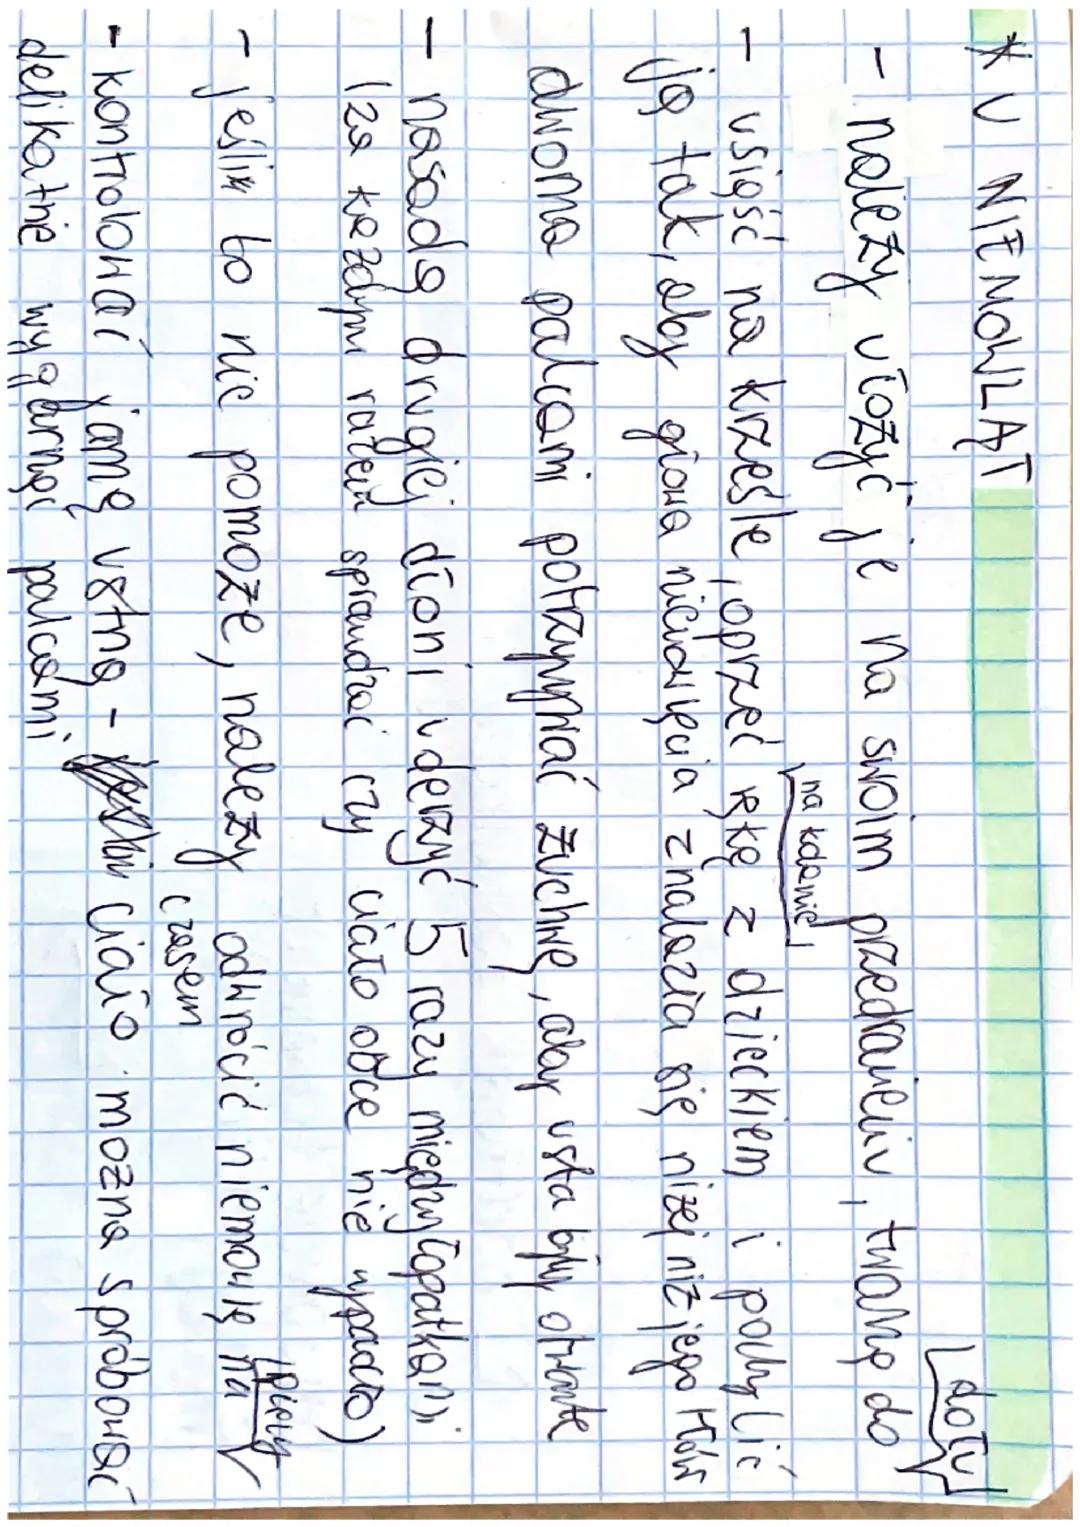 * U NIEMOWLĄT
- należy ułożyć je na swoim przedramieniu, twarzą do dołu
- usiąść na krześle, oprzeć rękę z dzieckiem na kolanie i pochylić
ją tak, aby głowa niemowlęcia znalazła się niżej niż jego tułów
dwoma palcami potrzymać żuchwę, aby usta były otwarte
- nasadą drugiej dłoni uderzyć 5 razy między łopatkami
(za każdym razem sprawdzać czy ciało obce nie wypadło)
- jeśli to nic pomoże, należy odwrócić niemowlę na plecy
- kontrolować jamę ustną - czasem ciało można spróbować
delikatnie wygarnąć palcami